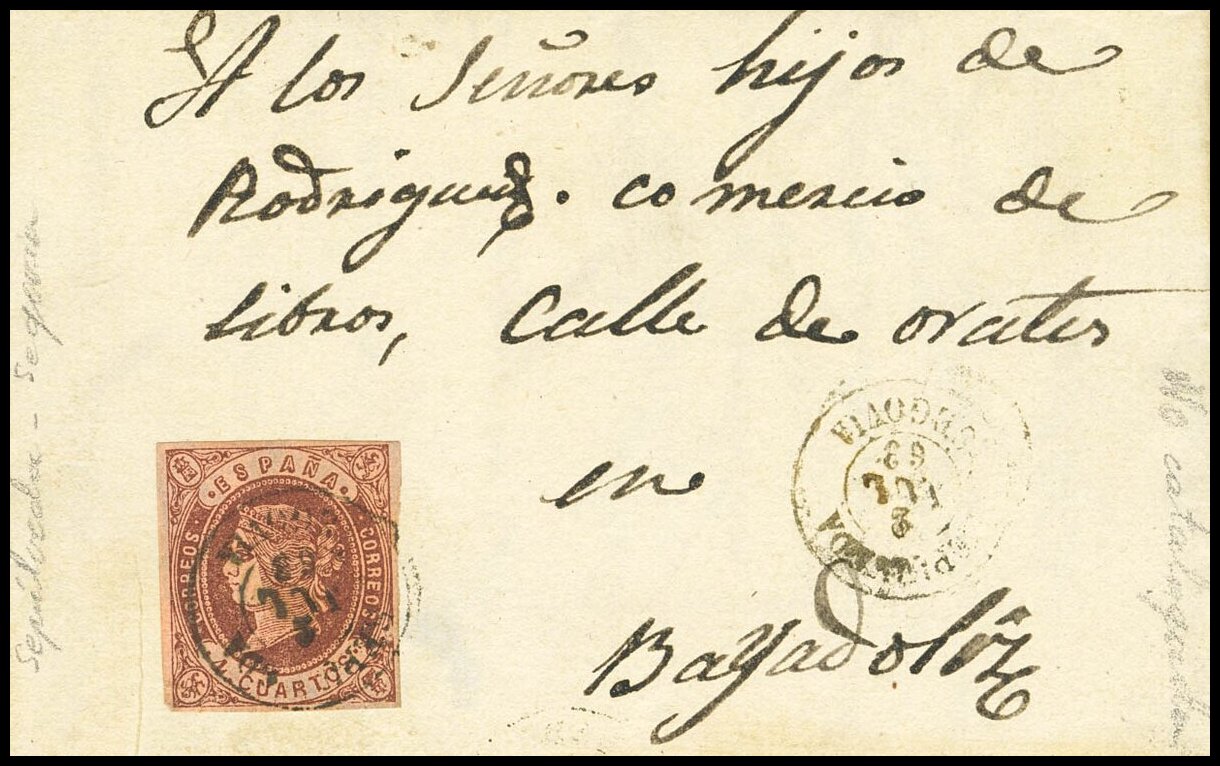 A los Señores hijos de
Rodriguez. comercio de
libros, Calle de orates
en
Bayadoliz
ESPAÑA
CORREOS
CORREOS
4 CUARTOS
SEGOVIA
2
JUL
63
2
JUL
63
Sepúlveda - Segovia
No catalogado